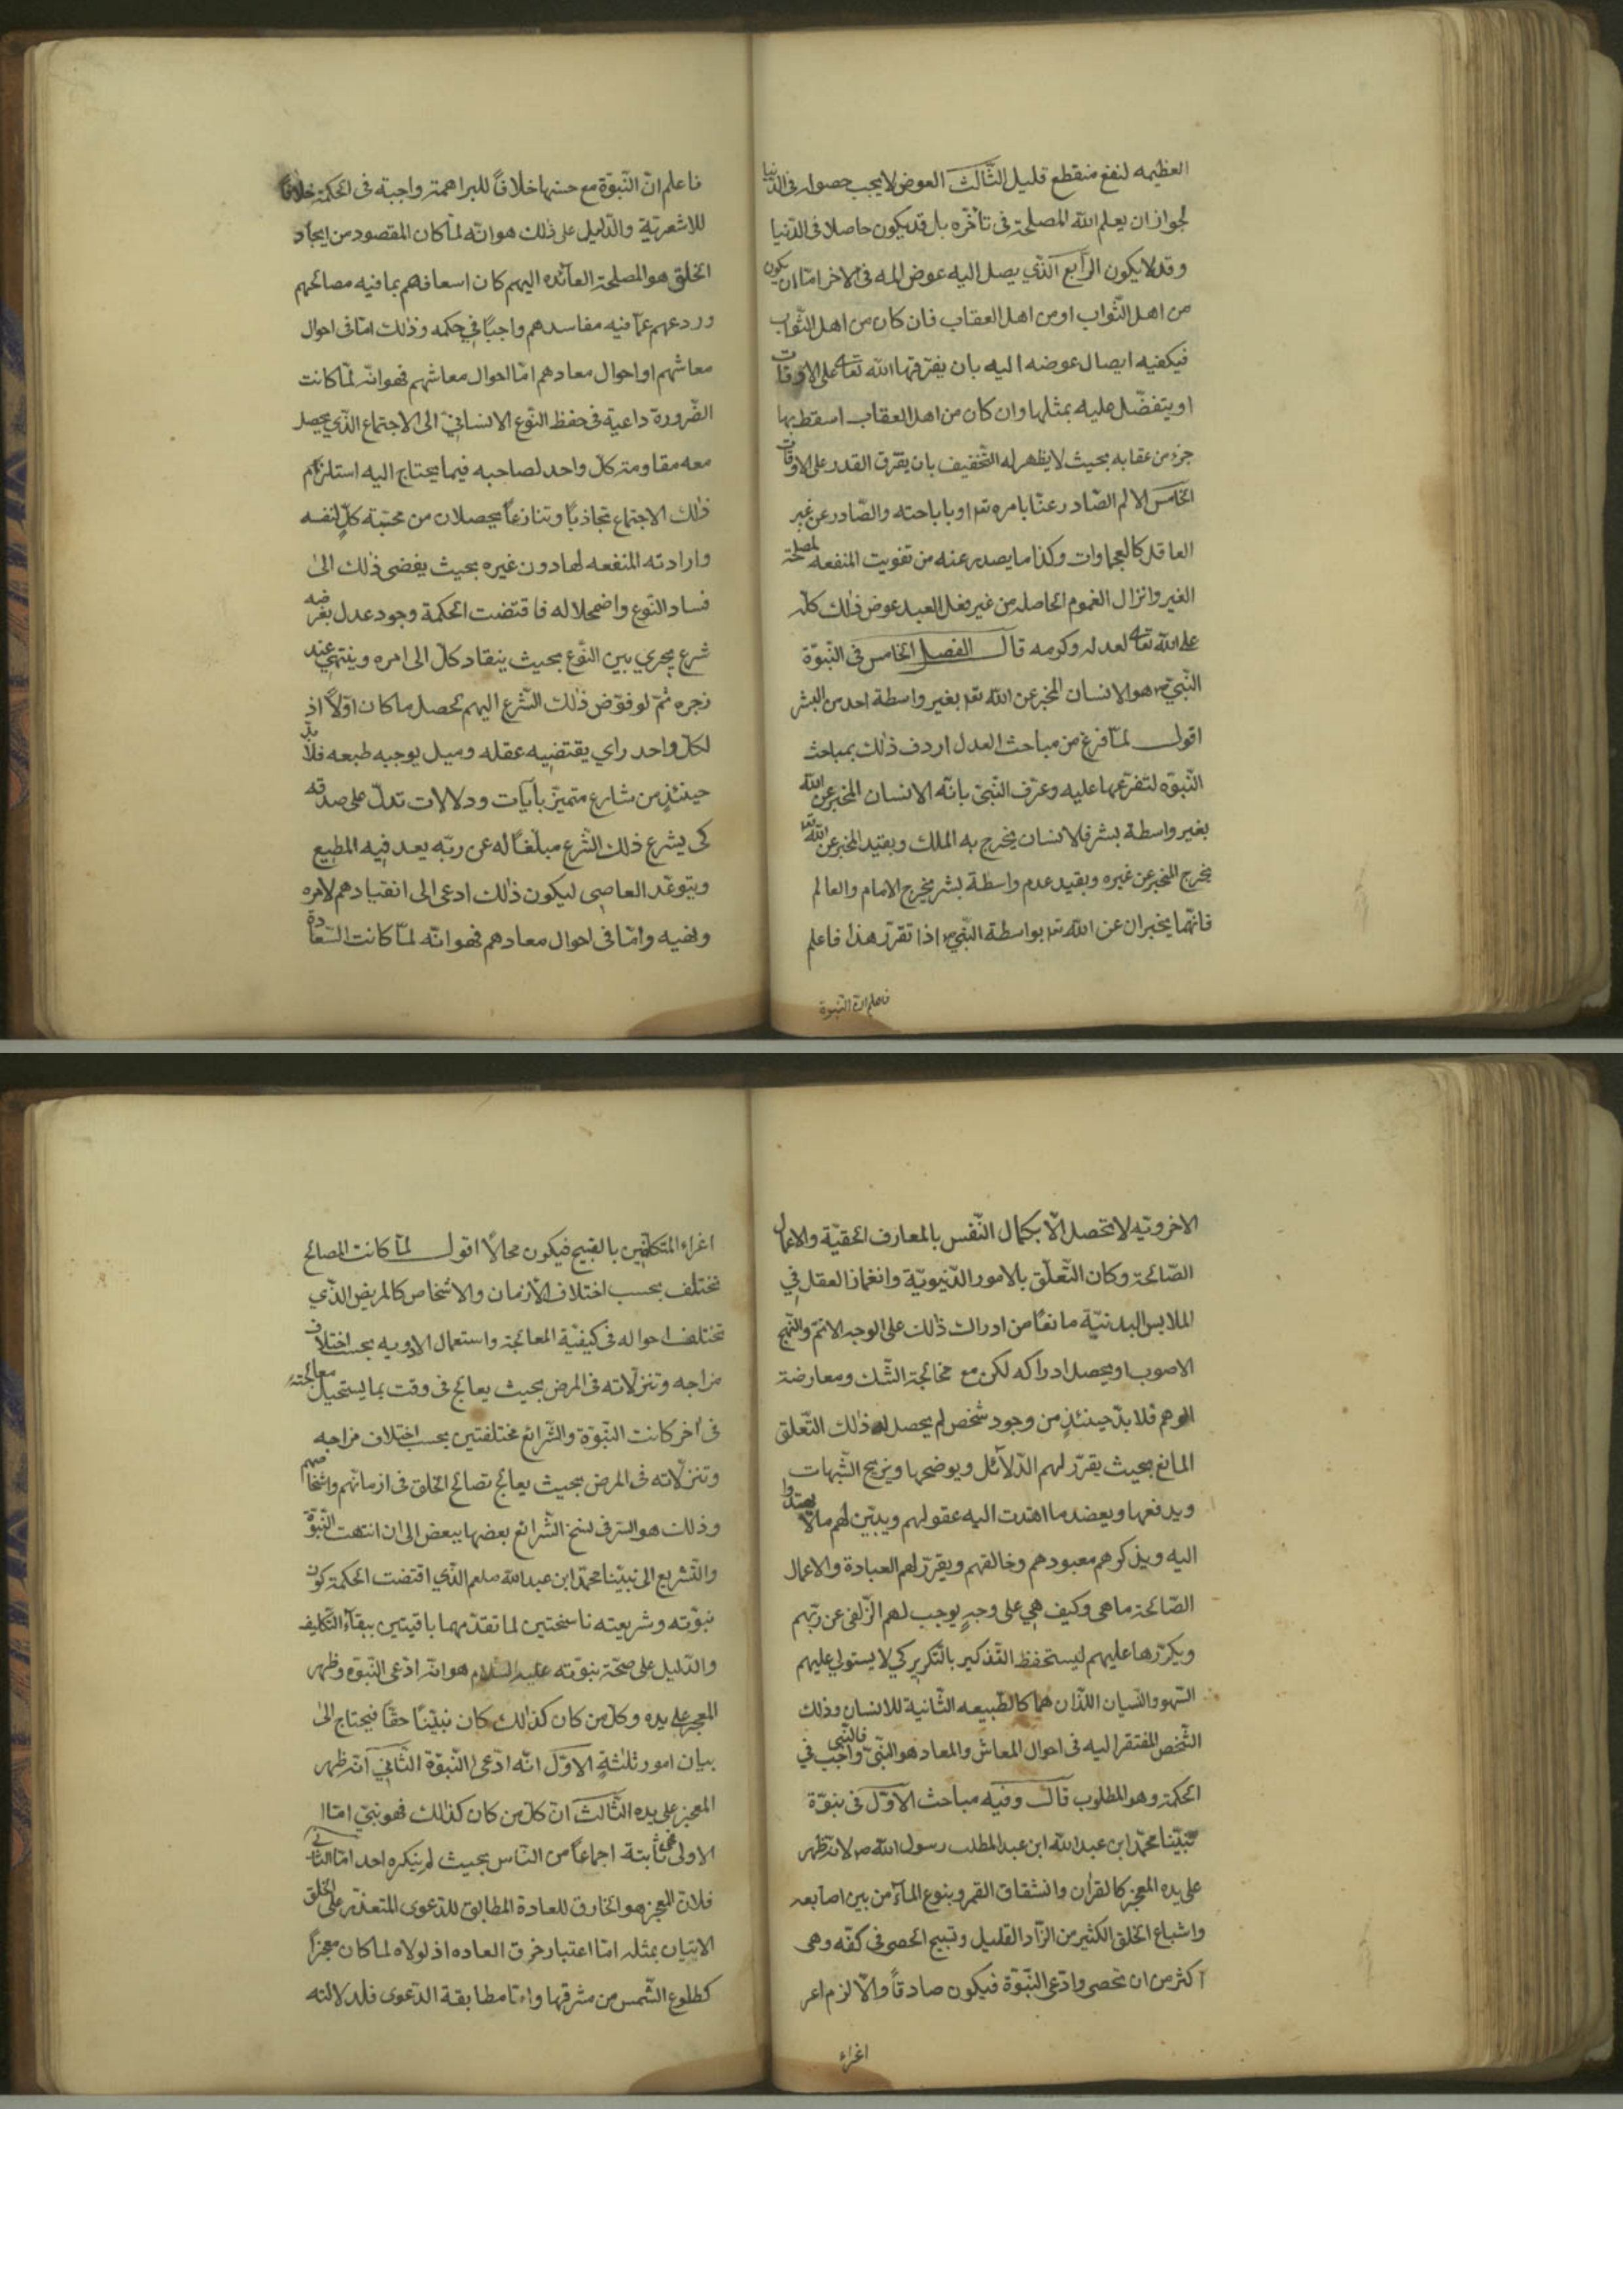 العظيمه لنفع منقطع قليل الثالث العوض لا يجب حصوله فى الدنيا
لجواز ان يعلم الله المصلحة فى تأخره بل قد يكون حاصلا فى الدنيا
وقد لا يكون الرابع الذي يصل اليه عوض المه فى الاخر امّا ان يكون
من اهل الثواب او من اهل العقاب فان كان من اهل الثواب
فيكفيه ايصال عوضه اليه بان يفرقها الله تعالى على الاوقات
او يتفضّل عليه بمثلها وان كان من اهل العقاب اسقط بها
جزء من عقابه بحيث لا يظهر له التخفيف بان يفرق القدر على الاوقات
الخامس الالم الصّادر عنّا بامره تع او باباحته والصّادر عن غير
العاقل كالعجماوات وكذا ما يصدر عنه من تفويت المنفعه لمصلحة
الغير وانزال الغموم الحاصله من غير فعل العبد عوض ذلك كلّه
على الله تعالى لعدله وكرمه قال الفصل الخامس فى النّبوّة
النّبيّ ص هو الانسان المخبر عن الله تع بغير واسطة احد من البشر
اقول لمّا فرغ من مباحث العدل اردف ذلك بمباحث
النّبوّه لتفرّعها عليه وعرّف النّبىّ بانّه الانسان المخبر عن الله
بغير واسطة بشر فالانسان يخرج به الملك وبقيد المخبر عن الله تع
يخرج المخبر عن غيره وبقيد عدم واسطة بشر يخرج الامام والعالم
فانّهما يخبران عن الله تع بواسطة النّبيّ ص اذا تقرّر هذا فاعلم
فاعلم انّ النّبوة
فاعلم انّ النّبوّة مع حسنها خلافاً للبراهمة واجبة فى الحكمة خلافاً
للاشعريّة والدّليل على ذلك هو انّه لمّا كان المقصود من ايجاد
الخلق هو المصلحة العآئده اليهم كان اسعافهم بما فيه مصالحهم
وردعهم عمّا فيه مفاسدهم واجباً في حكمه وذلك امّا فى احوال
معاشهم او احوال معادهم امّا احوال معاشهم فهو انّه لمّا كانت
الضّرورة داعية فى حفظ النّوع الانسانيّ الى الاجتماع الّذي يحصل
معه مقاومة كلّ واحد لصاحبه فيما يحتاج اليه استلزم
ذلك الاجتماع تجاذباً وتنازعاً يحصلان من محبّة كلّ لنفسه
وارادته المنفعه لها دون غيره بحيث يفضى ذلك الى
فساد النّوع واضمحلاله فاقتضت الحكمة وجود عدل يفرضه
شرع يجري بين النّوع بحيث ينقاد كلّ الى امره وينتهي عند
زجره ثمّ لو فوّض ذلك الشّرع اليهم لحصل ما كان اوّلاً اذ
لكلّ واحد راي يقتضيه عقله وميل يوجبه طبعه فلا بدّ
حينئذٍ من شارع متميّز بآيات ودلالات تدلّ على صدقه
كى يشرع ذلك الشّرع مبلّغاً له عن ربّه يعد فيه المطيع
ويتوعّد العاصى ليكون ذلك ادعى الى انقيادهم لامره
ونهيه وامّا فى احوال معادهم فهو انّه لمّا كانت السّعادة
الاخرويّه لا تحصل الّا بكمال النّفس بالمعارف الحقيّة والاعمال
الصّالحة وكان التّعلّق بالامور الدّنيويّة وانغماز العقل في
الملابس البدنيّة مانعاً من ادراك ذلك على الوجه الاتمّ والنّهج
الاصوب او يحصل ادراكه لكن مع مخالجة الشّك ومعارضة
الوهم فلا بدّ حينئذٍ من وجود شخص لم يحصل له ذلك التّعلق
المانع بحيث يقرّر لهم الدّلآئل ويوضحها ويزيح الشّبهات
ويدفعها ويعضد ما اهتدت اليه عقولهم ويبيّن لهم ما لا يهتدوا
اليه ويذكرهم معبودهم وخالقهم ويقرّر لهم العبادة والاعمال
الصّالحة ما هى وكيف هي على وجهٍ يوجب لهم الزّلفى عن ربّهم
ويكرّرها عليهم ليستحفظ التّذكير بالتّكرير كي لا يستولي عليهم
السّهو والنّسيان اللّذان هما كالطّبيعه الثّانية للانسان وذلك
الشّخص المفتقر اليه فى احوال المعاش والمعاد هو النّبىّ فالنّبى واجب في
الحكمة وهو المطلوب قال وفيه مباحث الاوّل فى نبوّة
نبيّنا محمّد ابن عبد الله ابن عبد المطلب رسول الله ص لانه ظهر
على يده المعجز كالقرآن وانشقاق القمر وينبوع المآء من بين اصابعه
واشباع الخلق الكثير من الزّاد القليل وتسبيح الحصى فى كفّه وهى
اكثر من ان تحصى وادّعى النّبّوة فيكون صادقاً والّا لزم اغر
اغراء
اغراء المتكلّفين بالقبيح فيكون محالًا اقول لمّا كانت المصالح
تختلف بحسب اختلاف الازمان والاشخاص كالمريض الّذي
تختلف احواله فى كيفيّة المعالجة واستعمال الادويه بحسب اختلاف
مزاجه وتنزلاته فى المرض بحيث يعالج فى وقت بما يستحيل معالجته
فى اخر كانت النّبوّة والشّرائع مختلفتين بحسب اختلاف مزاجه
وتنزلاته فى المرض بحيث يعالج تصالح الخلق فى ازمانهم واشخاصهم
وذلك هو السّر فى نسخ الشّرائع بعضها ببعض الى ان انتهت النّبوّة
والتّشريع الى نبيّنا محمّد ابن عبد الله صلعم الذّي اقتضت الحكمة كون
نبوّته وشريعته ناسختين لما تقدّمهما باقيتين ببقآء التّكليف
والدّليل على صحّة نبوّته عليه السلام هو انّه ادّعى النّبوّه وظهر
المعجز على يده وكلّ من كان كذلك كان نبيّنا حقّاً فيحتاج الى
بيان امور ثلثةٍ الاوّل انّه ادّعى النّبوّة الثّاني انّه ظهر
المعجز على يده الثّالث انّ كلّ من كان كذلك فهو نبيّ امّا
الاولى فهى ثابتة اجماعاً من النّاس بحيث لم ينكره احد امّا الثّانى
فلانّ المعجز هو الخارق للعادة المطابق للدّعوى المتعذّر على الخلق
الاتيان بمثله امّا اعتبار خرق العاده اذ لولاه لما كان معجزاً
كطلوع الشّمس من مشرقها وامّا مطابقة الدّعوى فلدلالته